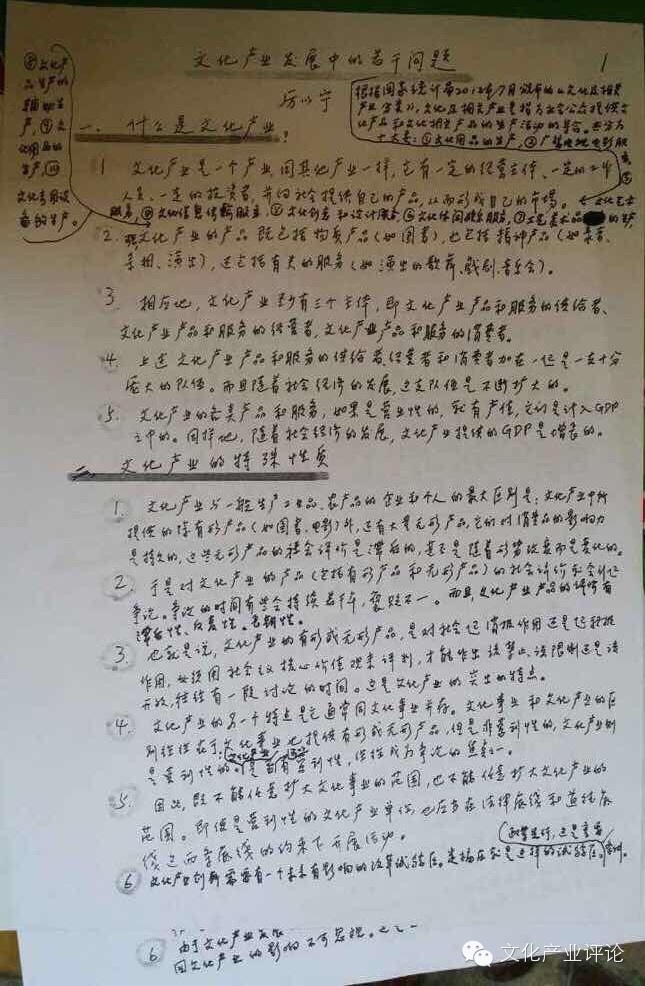 文化产业发展中的若干问题
1
厉以宁
根据国家统计局2012年7月颁布的《文化及相关
产业分类》，文化及相关产业是指为社会公众提供文
化产品和文化相关产品的生产活动的集合。共分为
十大类：①文化用品的生产，②广播电视电影服
务，③
⑧文化产
品生产的
辅助生
产，⑨文
化用品的
生产，⑩
文化专用设
备的生产。
一、什么是文化产业？
1 文化产业是一个产业，同其他产业一样，它有一定的经营主体、一定的工作
人员、一定的投资者，并向社会提供自己的产品，从而形成自己的市场。
文化艺术
服务，④文化信息传输服务，⑤文化创意和设计服务，⑥文化休闲娱乐服务，⑦工艺美术品的生产，
2. 文化产业的产品既包括物质产品（如图书），也包括精神产品（如录音、
录相、演出），还包括有关的服务（如演出的歌舞、戏剧、音乐会）。
3. 相应地，文化产业至少有三个主体，即文化产业产品和服务的供给者、
文化产业产品和服务的经营者，文化产业产品和服务的消费者。
4. 上述文化产业产品和服务的供给者、经营者和消费者加在一起是一支十分
庞大的队伍。而且随着社会经济的发展，这支队伍是不断扩大的。
5. 文化产业的各类产品和服务，如果是营业性的，就有产值，它们是计入GDP
之中的。同样地，随着社会经济的发展，文化产业提供的GDP是增长的。
二、文化产业的特殊性质
1. 文化产业与一般生产工业品、农产品的企业和个人的最大区别是：文化产业中所
提供的除有形产品（如图书、电影）外，还有大量无形产品，它们对消费者的影响力
是持久的，这些无形产品的社会评价是滞后的，甚至是随着形势改变而变化的。
2. 于是对文化产业的产品（包括有形产品和无形产品）的社会评价不会引起
争论。争论的时间有些会持续若干年，褒贬不一。而且，文化产业产品的评价有
滞后性、反复性、长期性。
3. 也就是说，文化产业的有形或无形产品，是对社会起消极作用还是起积极
作用，必须用社会主义核心价值观来评判，才能作出该禁止、该限制还是该
开放，往往有一段讨论的时间。这是文化产业的突出的特点。
4. 文化产业的另一个特点是它通常同文化事业并存。文化事业和文化产业的区
别往往在于：文化事业也提供有形或无形产品，但是非营利性的，文化产业则
是营利性的。是否有营利性，往往成为争论的焦点之一。
5. 因此，既不能任意扩大文化事业的范围，也不能任意扩大文化产业的
范围。即使是营利性的文化产业单位，也应当在法律底线和道德底
线这两条底线的约束下开展活动。
6 文化产业创新需要有一个未来有影响的改革试验区。
6 由于文化产业
因文化产业的影响不可忽视。
文化产业评论